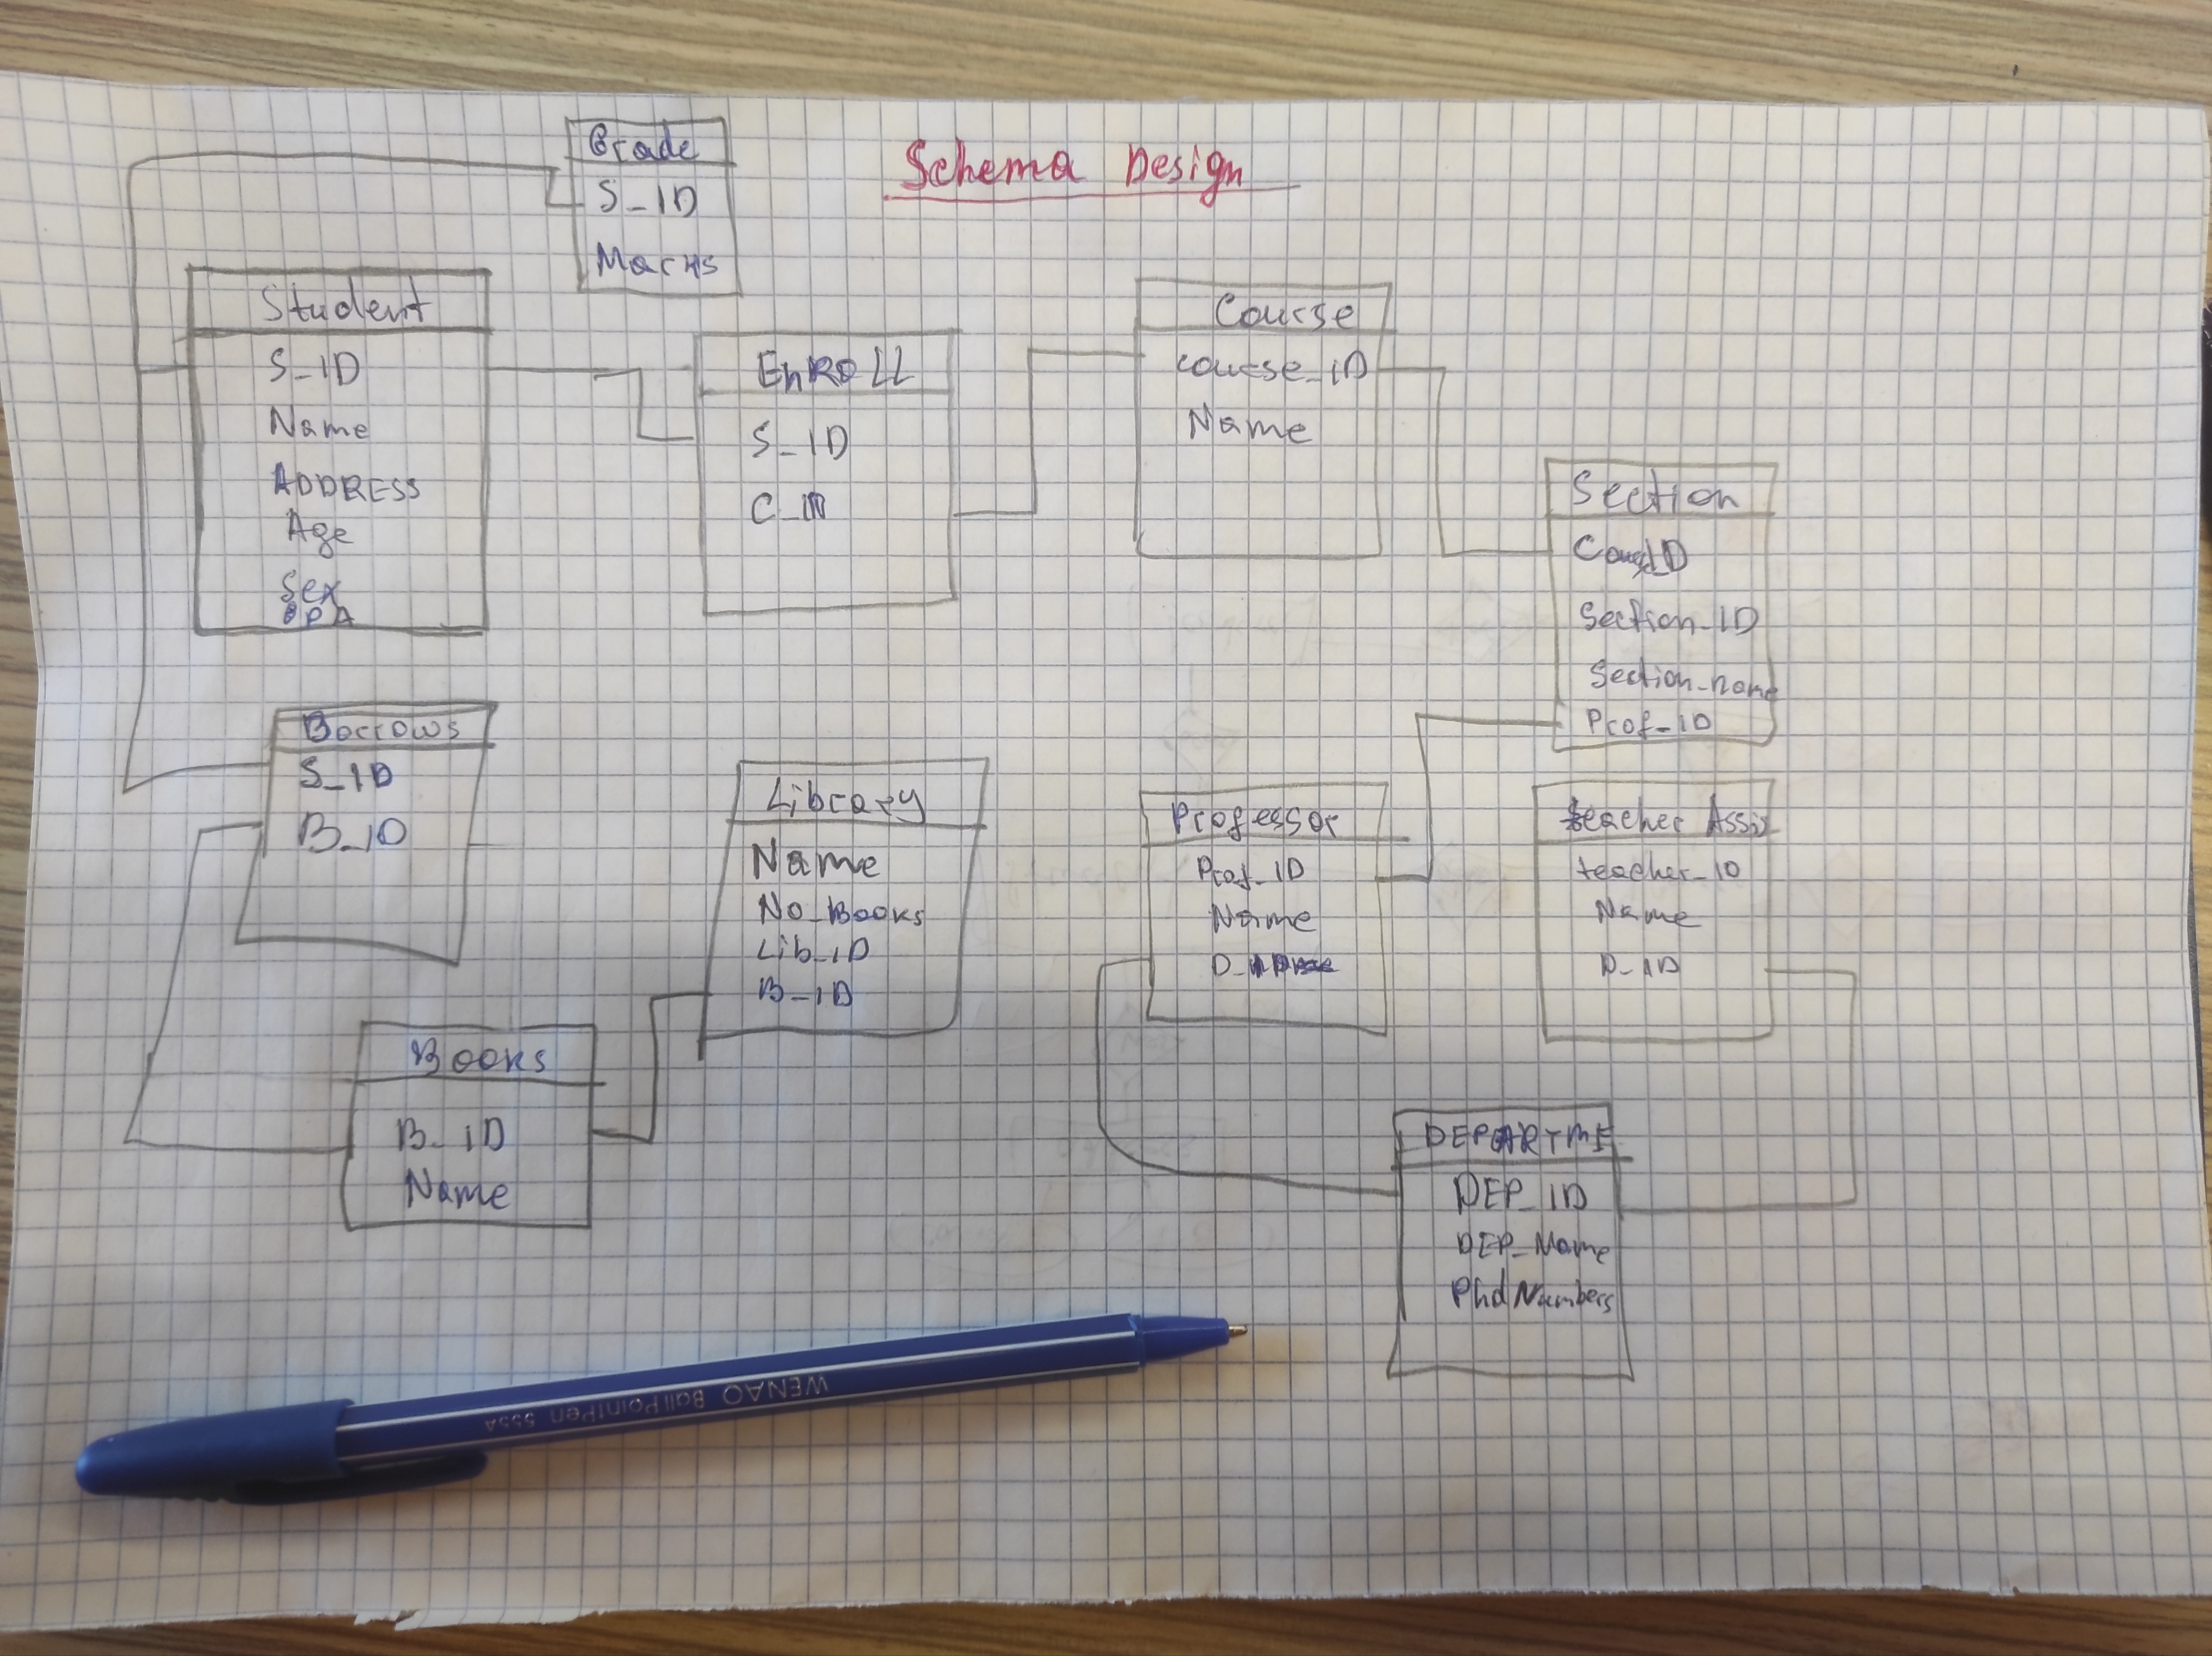 Schema Design
Grade
S_ID
Marks
Student
S_ID
Name
ADDRESS
Age
Sex
EnROLL
S_ID
Course
course_ID
Name
Section
Section_ID
Section_name
Prof_ID
Borrows
S_ID
B_ID
Library
Name
No_Books
Lib_ID
B_ID
Professor
Prof_ID
Name
teacher Assis
teacher_ID
Name
D_ID
Books
B_ID
Name
DEPARTME
DEP_ID
DEP_Name
Phd Numbers
WENAO Ball PointPen 555A